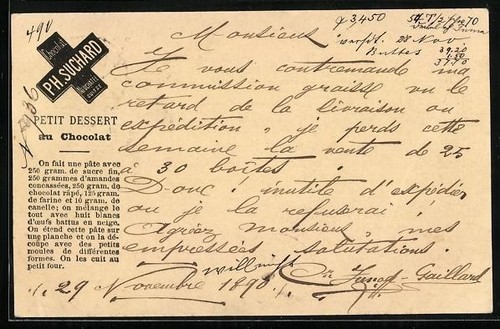 490
Chocolat
PH. SUCHARD
Neuchâtel
SUISSE
PETIT DESSERT
au Chocolat
On fait une pâte avec
250 gram. de sucre fin,
250 grammes d'amandes
concassées, 250 gram. de
chocolat râpé, 125 gram.
de farine et 10 gram. de
canelle; on mélange le
tout avec huit blancs
d'œufs battus en neige.
On étend cette pâte sur
une planche et on la dé-
coupe avec des petits
moules de différentes
formes. On les cuit au
petit four.
3450
28 Nov
Buttes
39.20
Monsieur
Je vous contremande ma
commission graisse vu le
retard de la livraison ou
expédition, je perds cette
semaine la vente de 25
à 30 boîtes
Donc inutile d'expédier
ou je la refuserai.
Agréez monsieur, mes
empressées salutations.
29 Novembre 1890
Junod-Gaillard